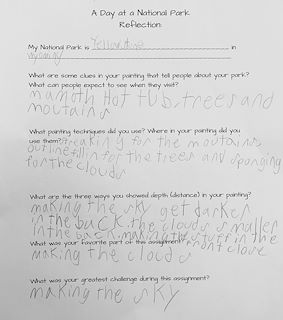 A Day at a National Park
Reflection:
My National Park is Yellowstone in
wyoming
What are some clues in your painting that tell people about your park?
What can people expect to see when they visit?
mamoth Hot Tubs, trees and
moutains
What painting techniques did you use? Where in your painting did you
use them? streaking for the moutains,
outline fill in for the trees and sponging
for the clouds
What are the three ways you showed depth (distance) in your painting?
making the sky get darker
in the back, the clouds smaller
in the back, making the stuff in the
front close
What was your favorite part of this assignment?
making the clouds
What was your greatest challenge during this assignment?
making the sky